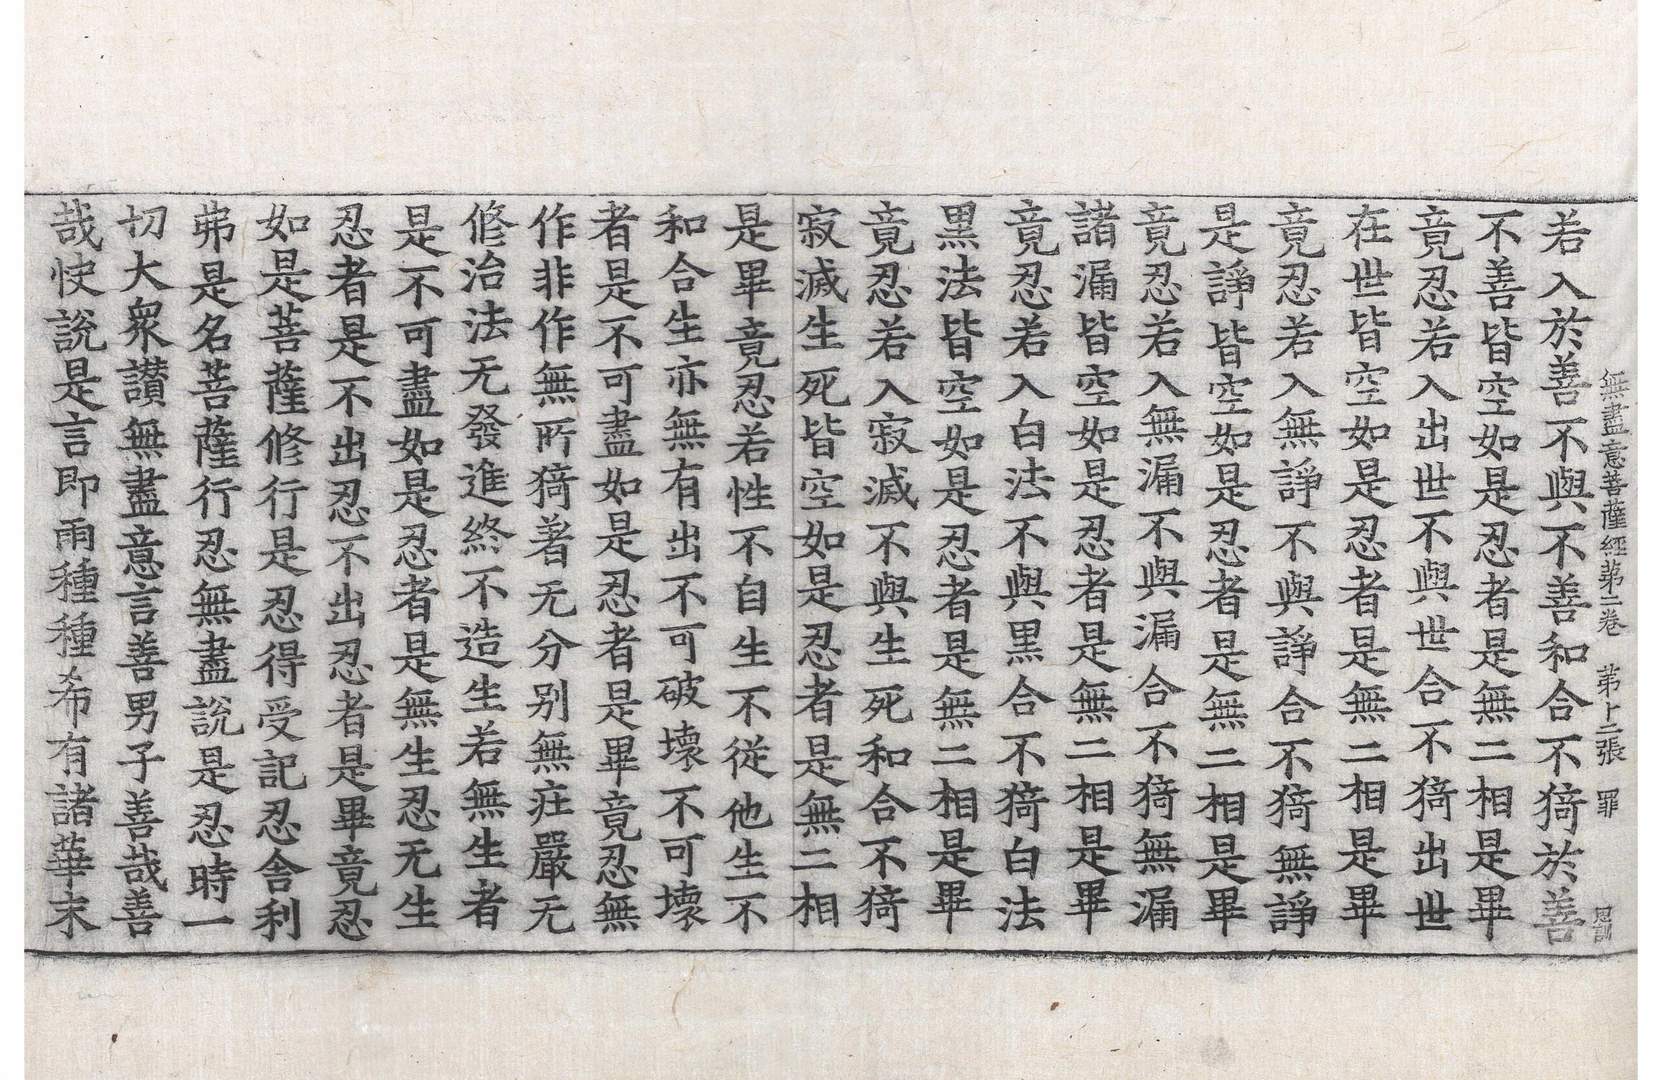 無盡意菩薩經第二卷 第十二張 罪
若入於善不與不善和合不猗於善
不善皆空如是忍者是無二相是畢
竟忍若入出世不與世合不猗出世
在世皆空如是忍者是無二相是畢
竟忍若入無諍不與諍合不猗無諍
是諍皆空如是忍者是無二相是畢
竟忍若入無漏不與漏合不猗無漏
諸漏皆空如是忍者是無二相是畢
竟忍若入白法不與黑合不猗白法
黑法皆空如是忍者是無二相是畢
竟忍若入寂滅不與生死和合不猗
寂滅生死皆空如是忍者是無二相
是畢竟忍若性不自生不從他生不
和合生亦無有出不可破壞不可壞
者是不可盡如是忍者是畢竟忍無
作非作無所猗著无分别無庄嚴无
修治法无發進終不造生若無生者
是不可盡如是忍者是無生忍无生
忍者是不出忍不出忍者是畢竟忍
如是菩薩修行是忍得受記忍舍利
弗是名菩薩行忍無盡說是忍時一
切大衆讃無盡意言善男子善哉善
哉快說是言即雨種種希有諸華末